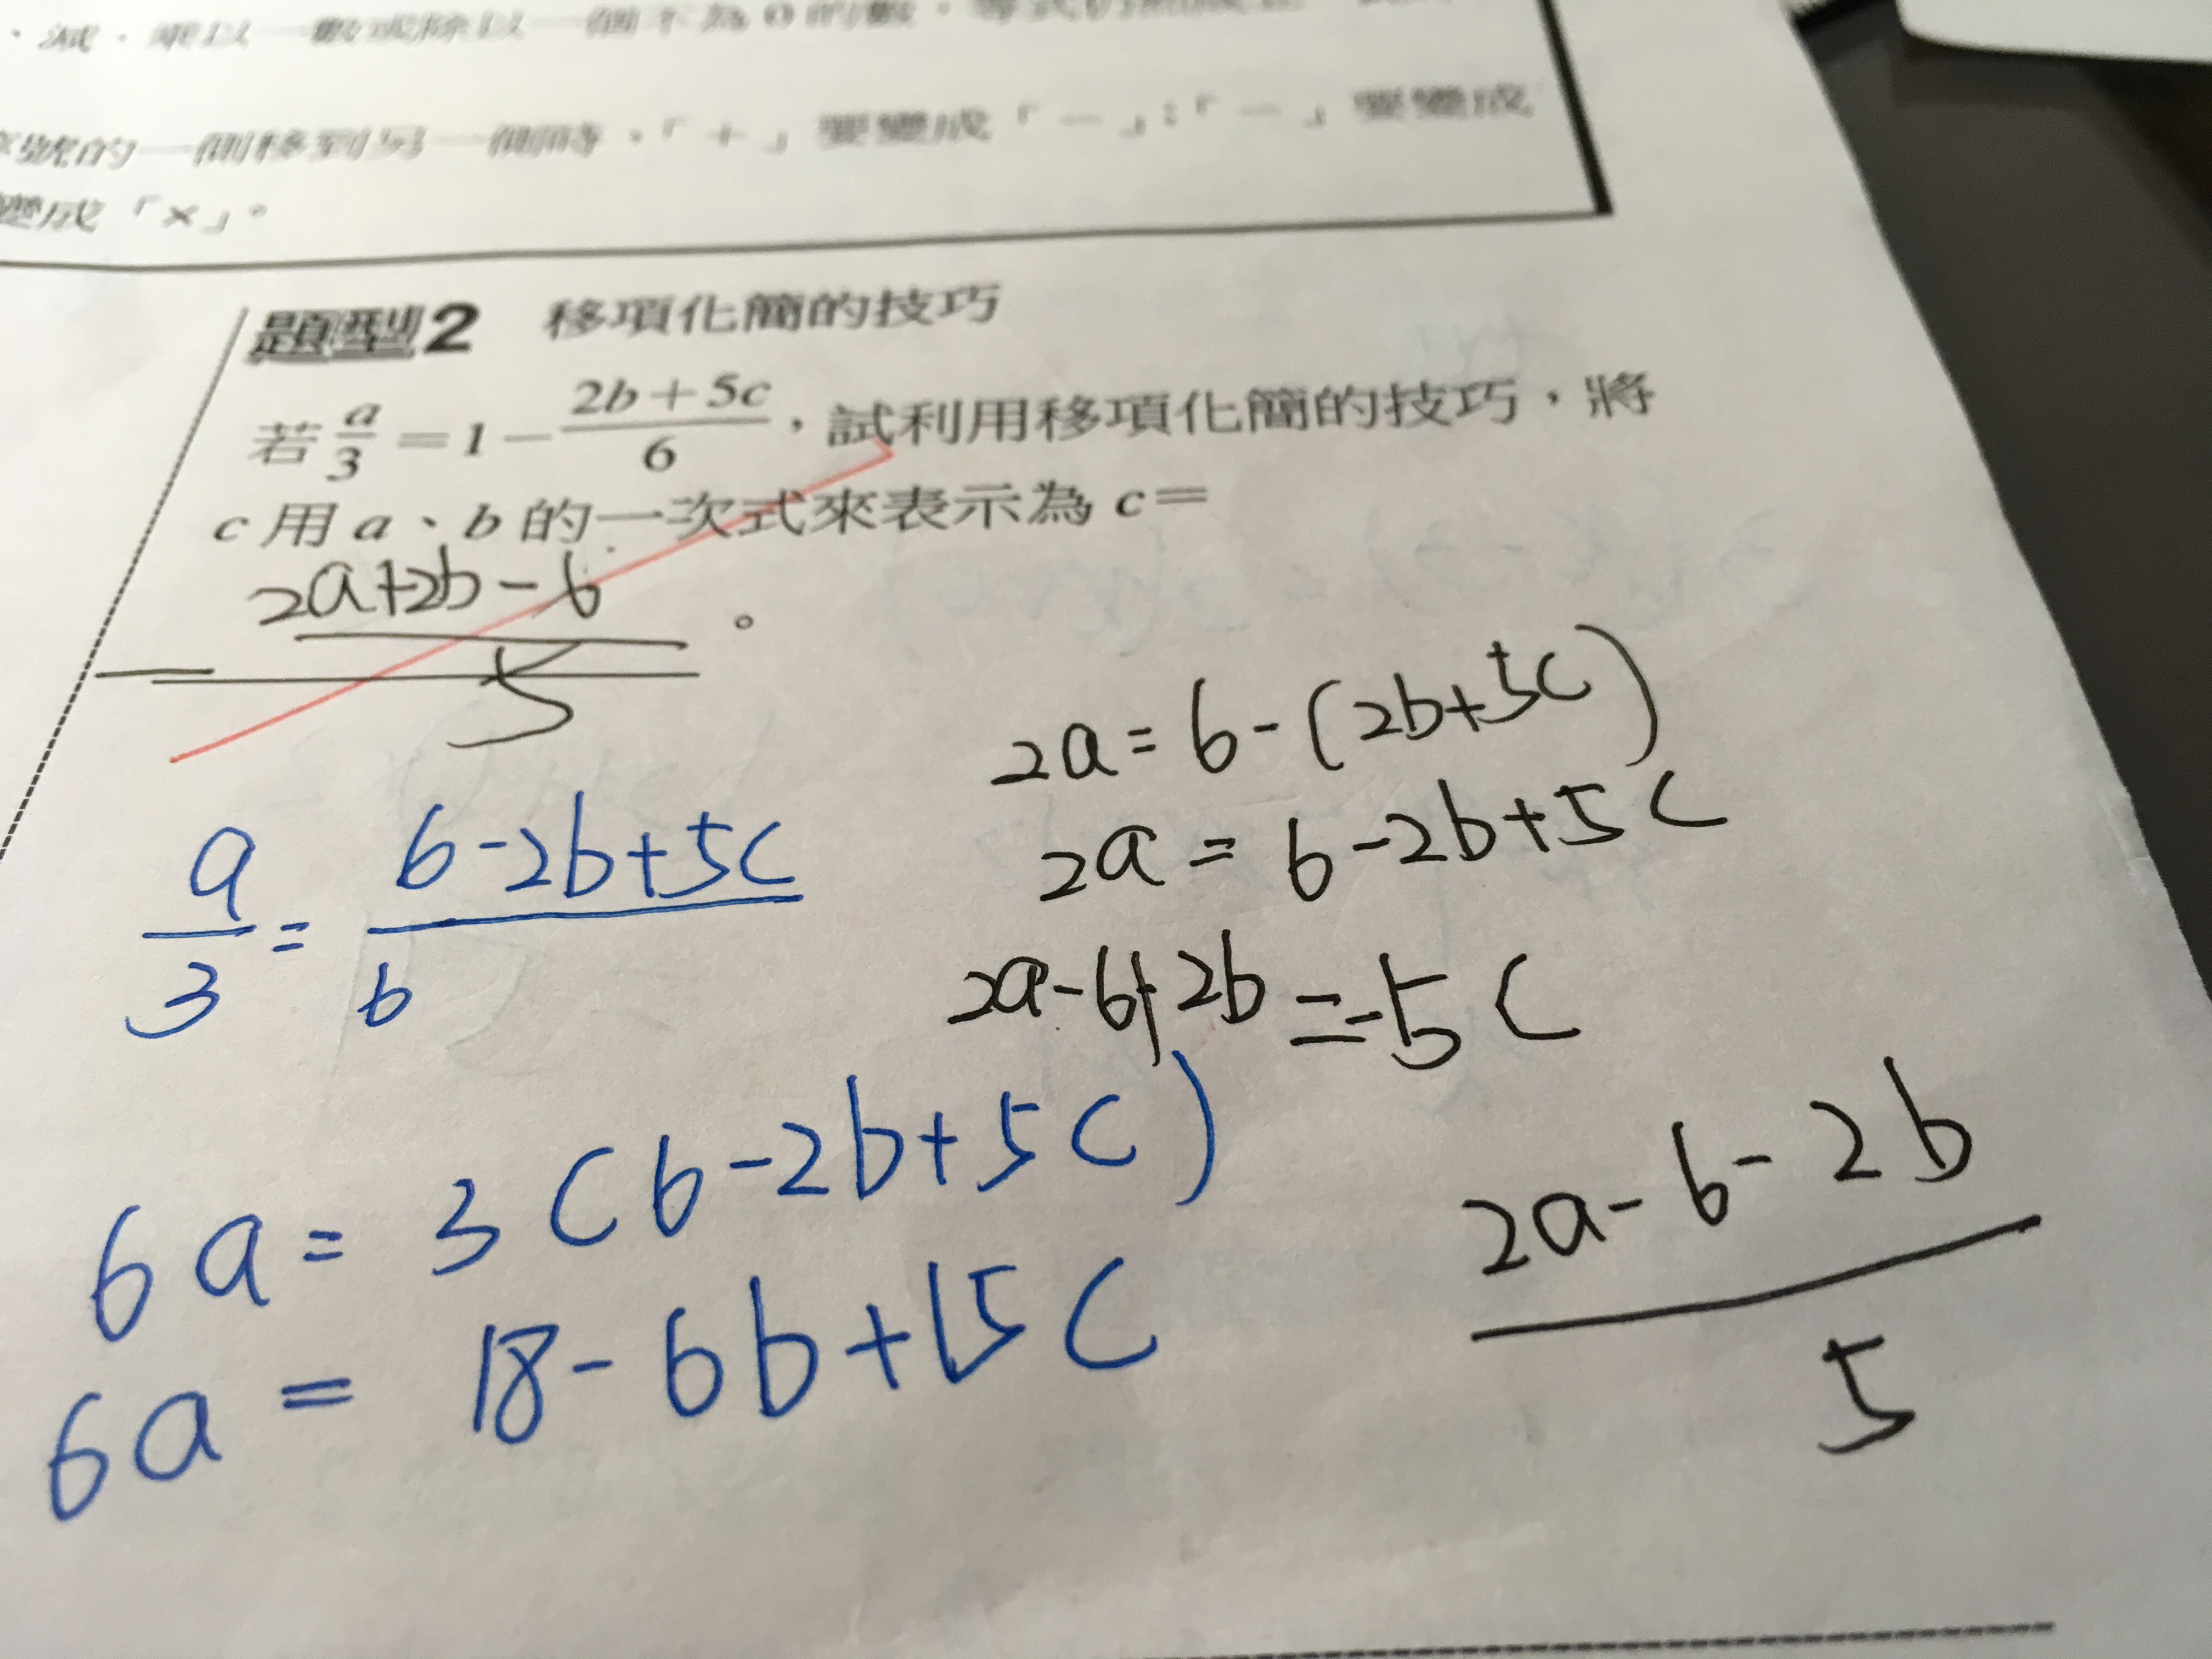 、減、乘以一數或除以一個不為0的數,等式仍然成立
號的一側移到另一側時,「+」要變成「-」;「-」要變成
變成「×」。
題型2 移項化簡的技巧
若 a/3 = 1 - (2b+5c)/6,試利用移項化簡的技巧,將
c 用 a、b 的一次式來表示為 c=
2a+2b-6
5
。
2a = 6-(2b+5c)
2a = 6-2b+5c
2a-6+2b = -5c
2a-6-2b
5
a/3 = 6-2b+5c/6
6a = 3(6-2b+5c)
6a = 18-6b+15c